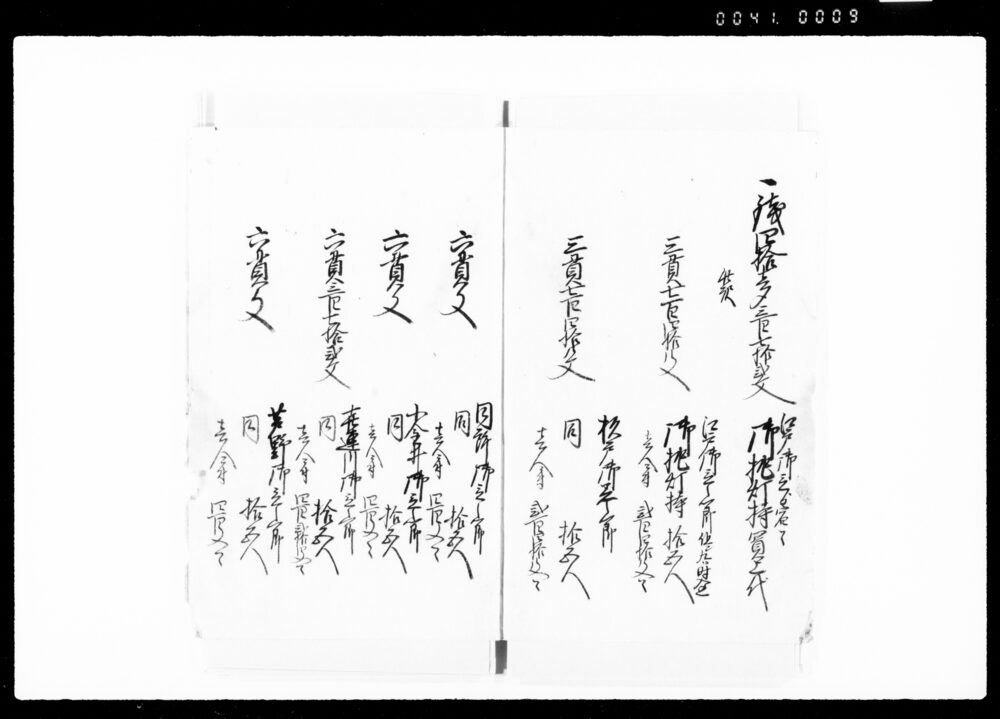 0041. 0009
一銭四拾壱〆三百七拾弐文
江戸御立
御挑灯持買上代
三貫七百四拾八文
江戸御立之節
御挑灯持 拾五人
壱人ニ付 弐百四拾八文ツヽ
三貫七百四拾八文
杉戸御立之節
同 拾五人
壱人ニ付 弐百四拾八文ツヽ
六貫文
同所御立之節
同 拾五人
壱人ニ付 四百文ツヽ
六貫文
小金井御立之節
同 拾五人
壱人ニ付 四百文ツヽ
六貫三百七拾弐文
喜連川御立之節
同 拾五人
壱人ニ付
六貫文
芦野御立之節
同 拾五人
壱人ニ付 四百文ツヽ